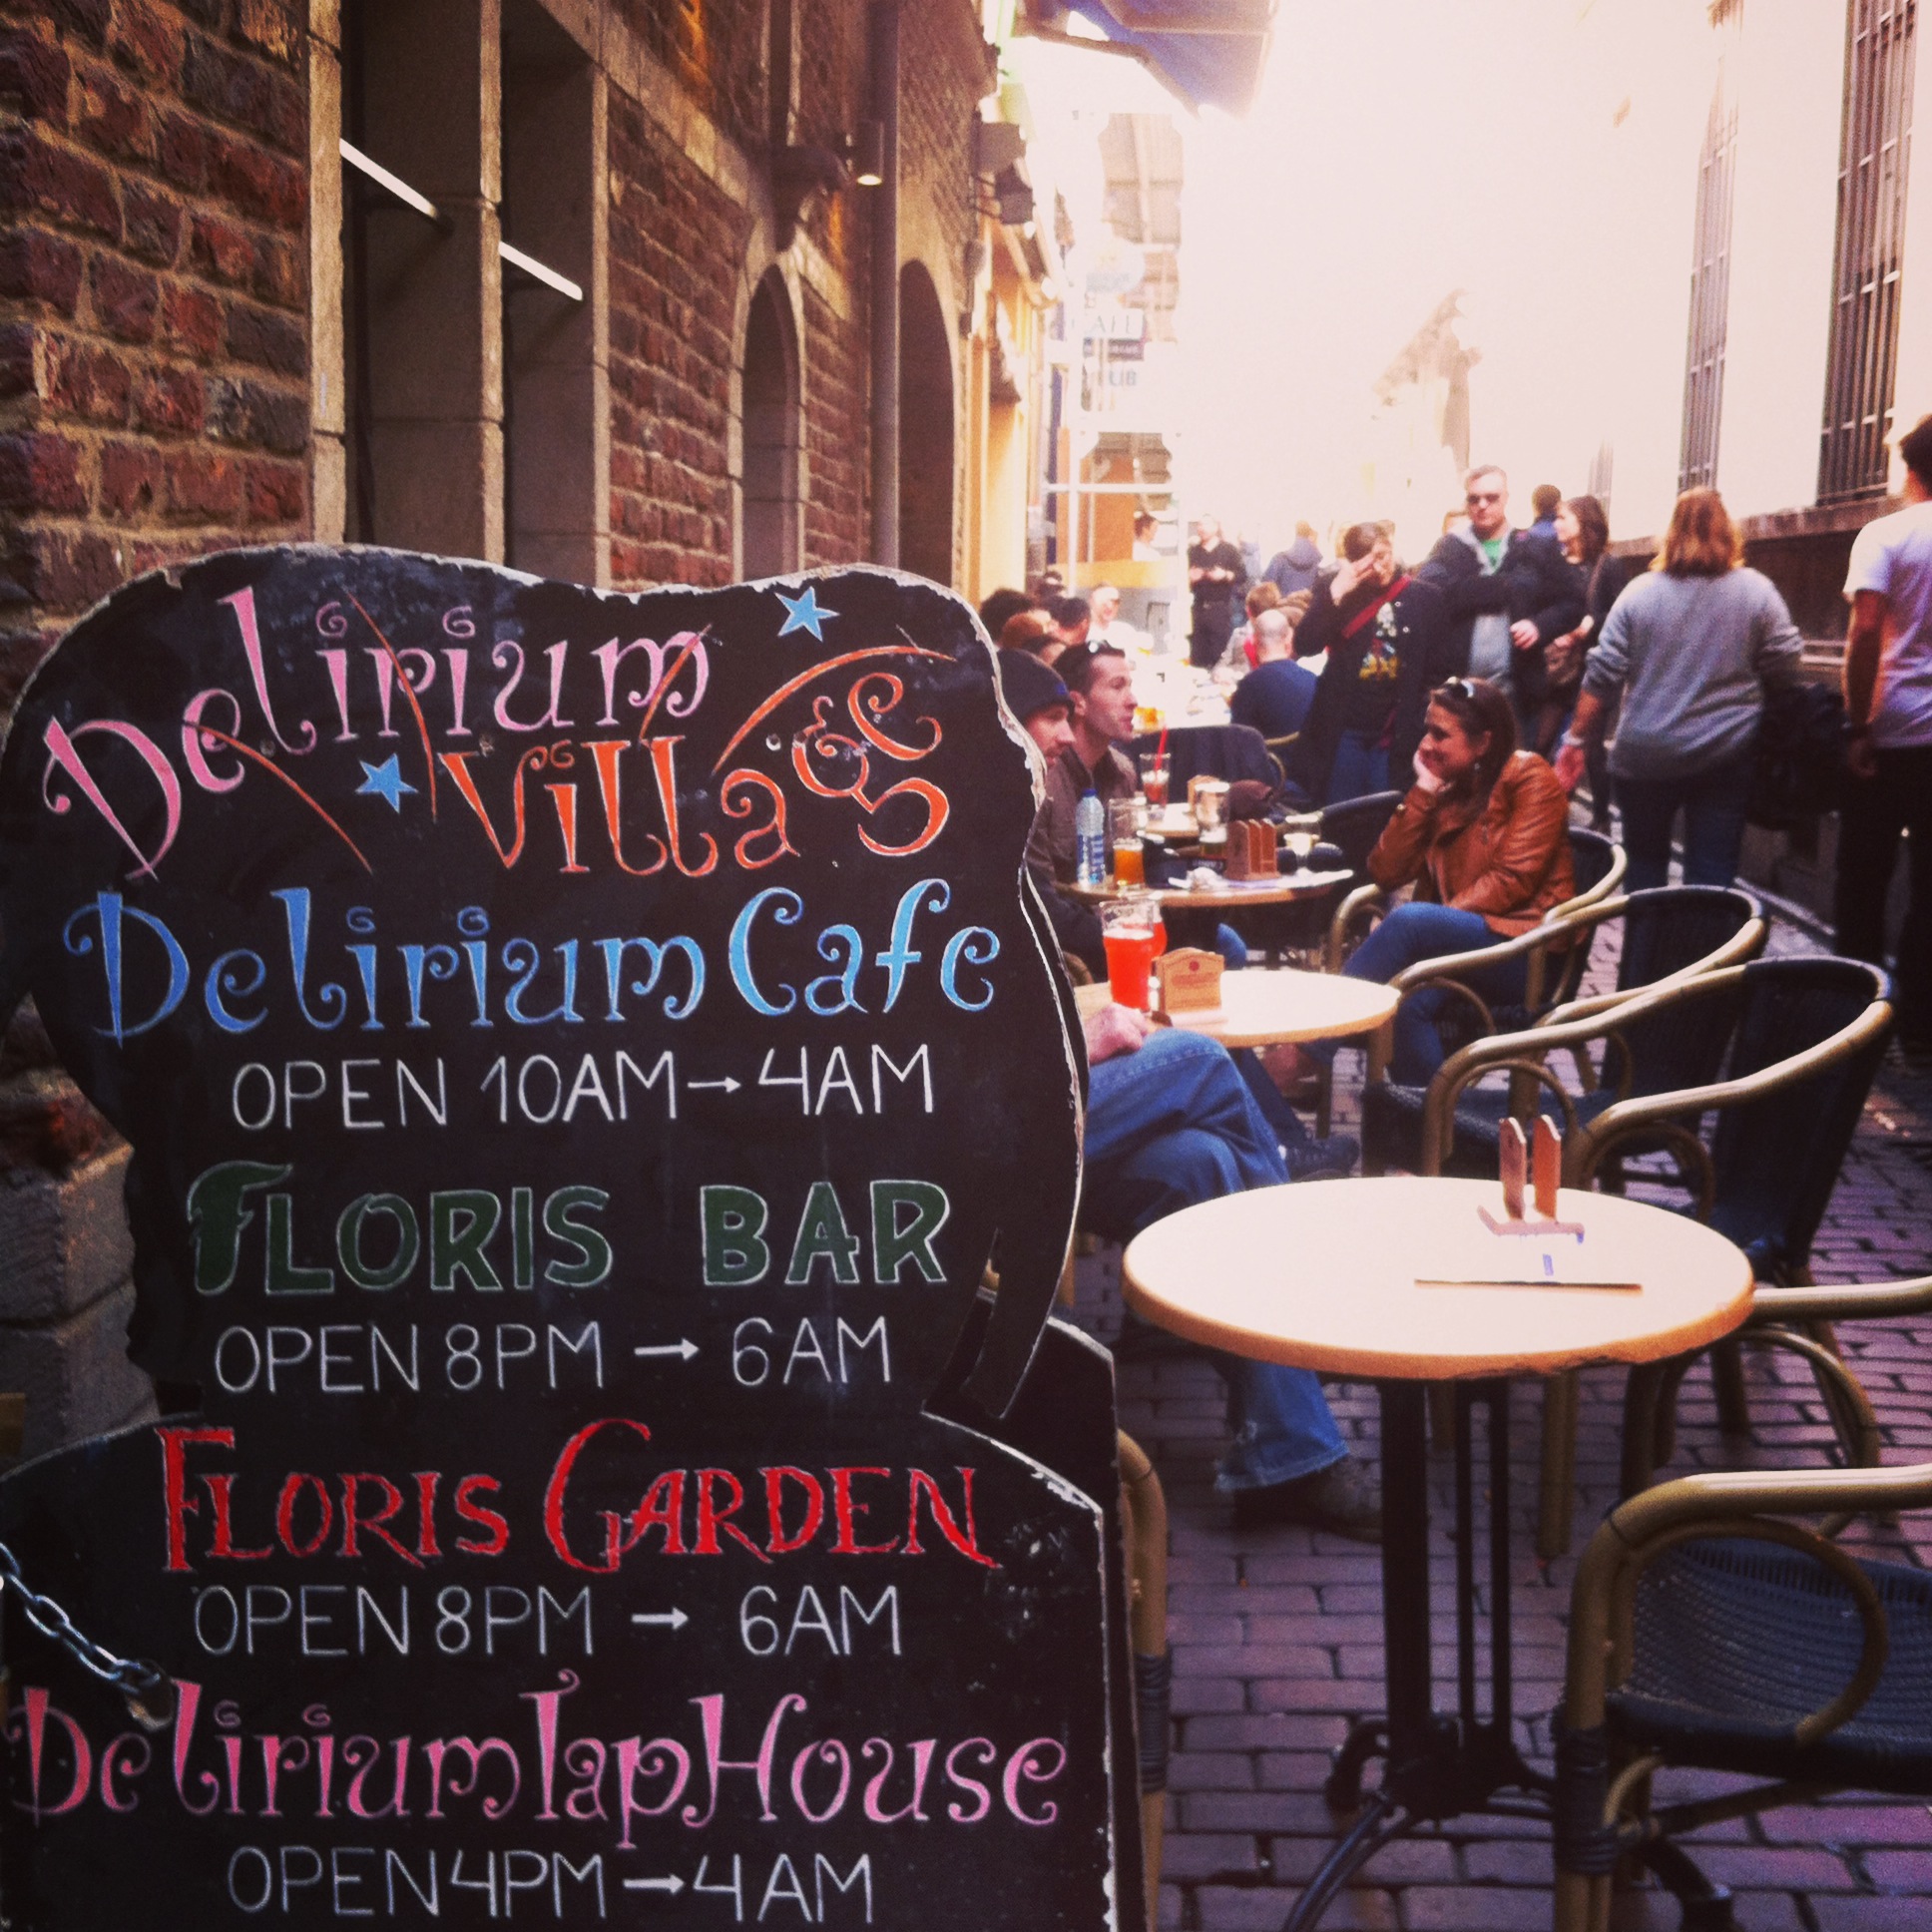 Delirium
Village
Delirium Cafe
OPEN 10AM → 4AM
FLORIS BAR
OPEN 8PM → 6AM
FLORIS GARDEN
OPEN 8PM → 6AM
Delirium TapHouse
OPEN 4PM → 4AM